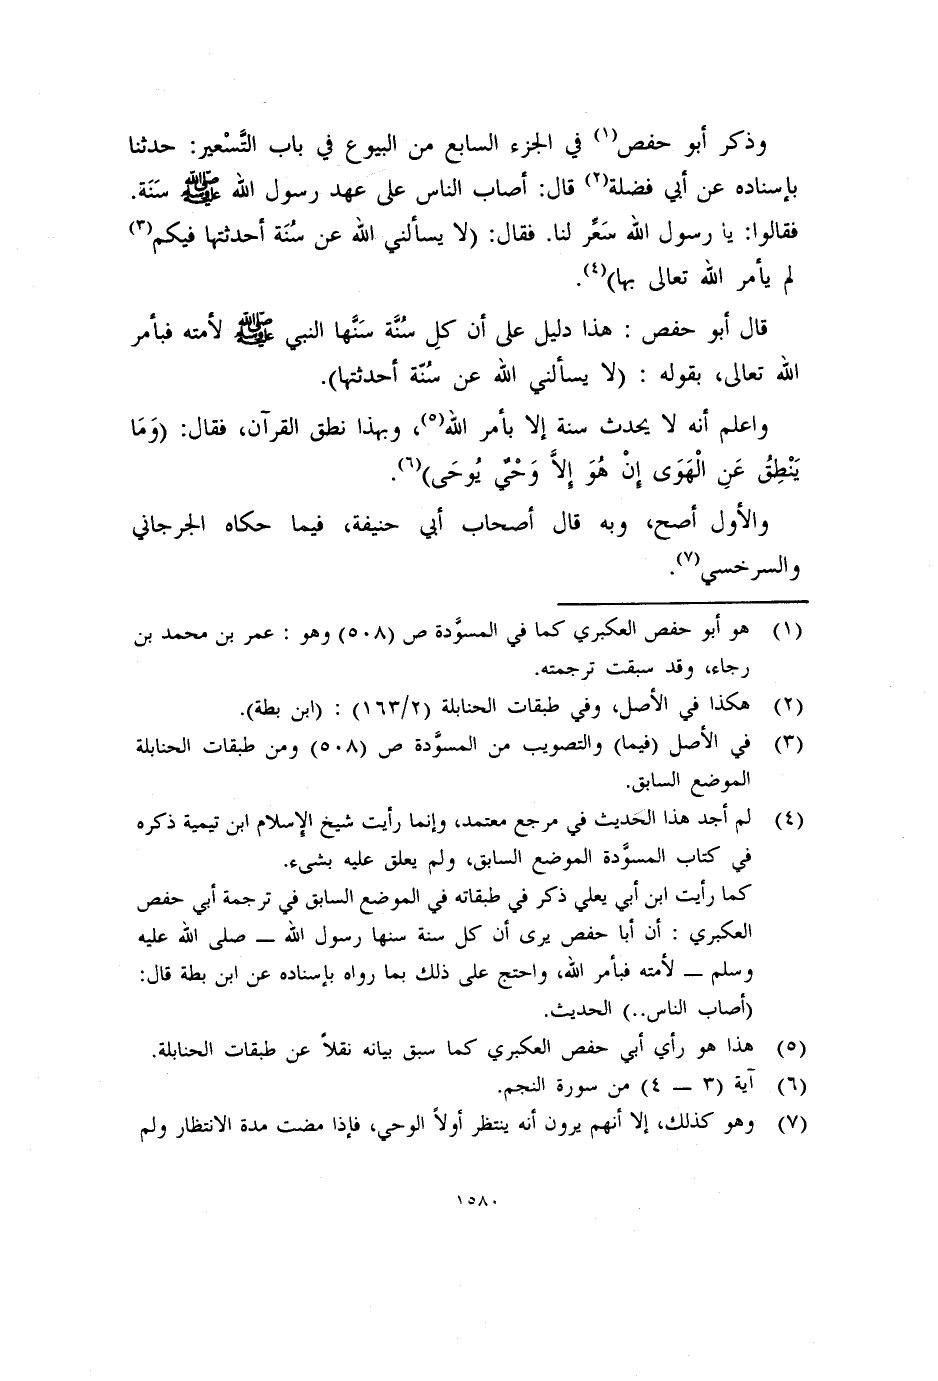 وذكر أبو حفص(١) في الجزء السابع من البيوع في باب التَّسْعير: حدثنا
بإسناده عن أبي فضلة(٢) قال: أصاب الناس على عهد رسول الله ﷺ سَنَة.
فقالوا: يا رسول الله سَعِّر لنا. فقال: (لا يسألني الله عن سُنَة أحدثتها فيكم(٣)
لم يأمر الله تعالى بها)(٤).
قال أبو حفص : هذا دليل على أن كل سُنَّة سَنَّها النبي ﷺ لأمته فبأمر
الله تعالى، بقوله : (لا يسألني الله عن سُنّة أحدثتها).
واعلم أنه لا يحدث سنة إلا بأمر الله(٥)، وبهذا نطق القرآن، فقال: (وَمَا
يَنْطِقُ عَنِ الْهَوَى إِنْ هُوَ إِلاَّ وَحْيٌ يُوحَى)(٦).
والأول أصح، وبه قال أصحاب أبي حنيفة، فيما حكاه الجرجاني
والسرخسي(٧).
(١) هو أبو حفص العكبري كما في المسوَّدة ص (٥٠٨) وهو : عمر بن محمد بن
رجاء، وقد سبقت ترجمته.
(٢) هكذا في الأصل، وفي طبقات الحنابلة (١٦٣/٢) : (ابن بطة).
(٣) في الأصل (فيما) والتصويب من المسوَّدة ص (٥٠٨) ومن طبقات الحنابلة
الموضع السابق.
(٤) لم أجد هذا الحديث في مرجع معتمد، وإنما رأيت شيخ الإسلام ابن تيمية ذكره
في كتاب المسوَّدة الموضع السابق، ولم يعلق عليه بشيء.
كما رأيت ابن أبي يعلي ذكر في طبقاته في الموضع السابق في ترجمة أبي حفص
العكبري : أن أبا حفص يرى أن كل سنة سنها رسول الله ــ صلى الله عليه
وسلم ــ لأمته فبأمر الله، واحتج على ذلك بما رواه بإسناده عن ابن بطة قال:
(أصاب الناس..) الحديث.
(٥) هذا هو رأي أبي حفص العكبري كما سبق بيانه نقلاً عن طبقات الحنابلة.
(٦) آية (٣ ــ ٤) من سورة النجم.
(٧) وهو كذلك، إلا أنهم يرون أنه ينتظر أولاً الوحي، فإذا مضت مدة الانتظار ولم
١٥٨٠